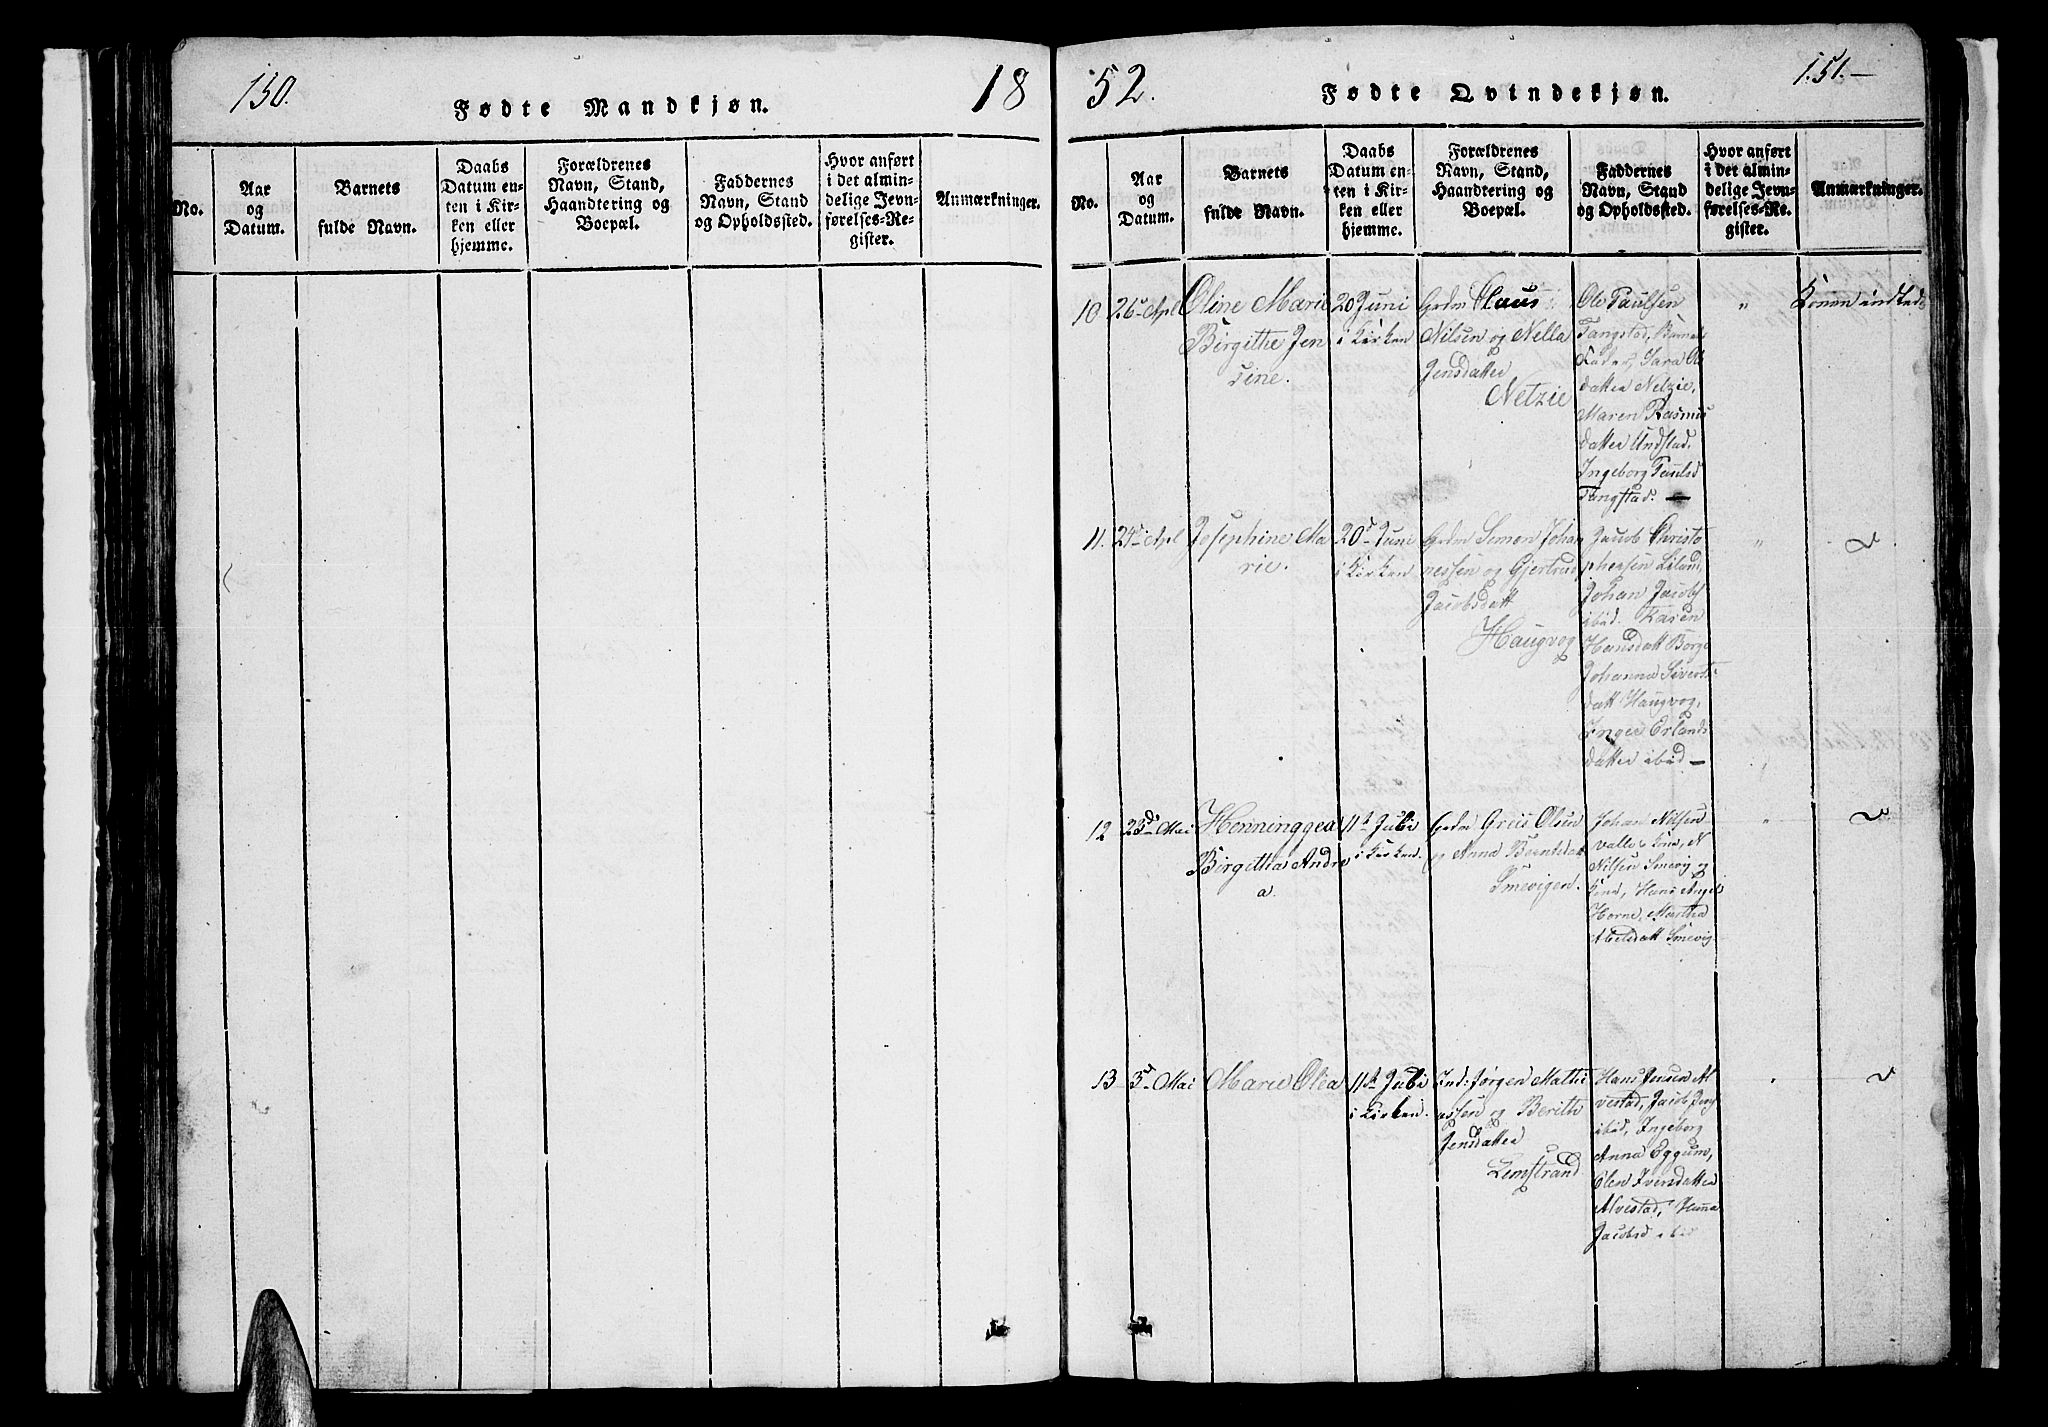 150.
18
Fødte Mandkjøn.
No.
Aar
og
Datum.
Barnets
fulde Navn.
Daabs
Datum en-
ten i Kir-
ken eller
hjemme.
Forældrenes
Navn, Stand,
Haandtering og
Boepæl.
Faddernes
Navn, Stand
og Opholdssted.
Hvor anført
i det almin-
delige Jevn-
førelses-Re-
gister.
Anmærkninger.
52.
151.—
Fødte Qvindekjøn.
No.
Aar
og
Datum.
Barnets
fulde Navn.
Daabs
Datum en-
ten i Kir-
ken eller
hjemme.
Forældrenes
Navn, Stand,
Haandtering og
Boepæl.
Faddernes
Navn, Stand
og Opholdssted.
Hvor anført
i det almin-
delige Jevn-
førelses-Re-
gister.
Anmærkninger.
10
26 Apl
Oline Marie
Birgithe Jen
sine.
20 Juni
i Kirken
Grdm Claus
Nilsen og Nella
Jensdatter
Netzie
Ole Paulsen
Tangstad, Barnets
Fader, Sara Ol
datter Netzie,
Maren Rasmus
datter Undstad.
Ingeborg Paulsd
Tangstad. —
"
Konen indled
11.
24d Apl
Josephine Ma
rie.
20d Juni
i Kirken
Grdm Simon Johan
nessen og Gjertrud
Jacobsdatt
Haugvog
Jacob Christo
phersen Liland,
Johan Jacobs
ibid. Karen
Hansdatt Borge
Johanna Siverts
datt Haugvog,
Inger Erlands
datter ibid —
"
12
23d Mai
Henninggea
Birgitha Andre
a.
11t Juli
i Kirken.
Grdm Greis Olsen
og Anna Berntsdatt
Smevigen.
Johan Nilsen
Valle & Kone, N
Nilsen Smevig og
Kone, Hans Angel
Horne, Martha
Abelsdatt Smevig
"
13
3d Mai
Marie Olea
11t Juli
i Kirken.
Ind: Jørgen Mathi
assen og Berith
Jensdatter
Lemstrand
Hans Jensen Al
vestad, Jacob Jens
ibid, Ingeborg
Anna Eggum,
Olen Iversdatter
Alvestad, Hanna
Jacobsd ibid